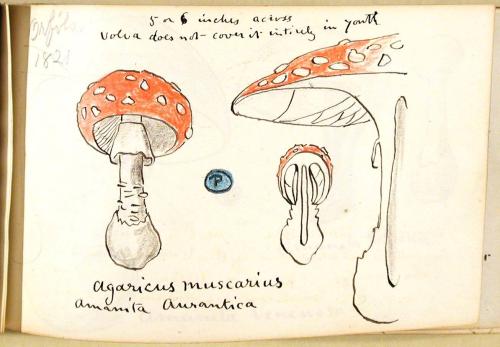 5 or 6 inches across
Volva does not cover it intirely in youth
1821
P
Agaricus muscarius
Amanita Aurantica